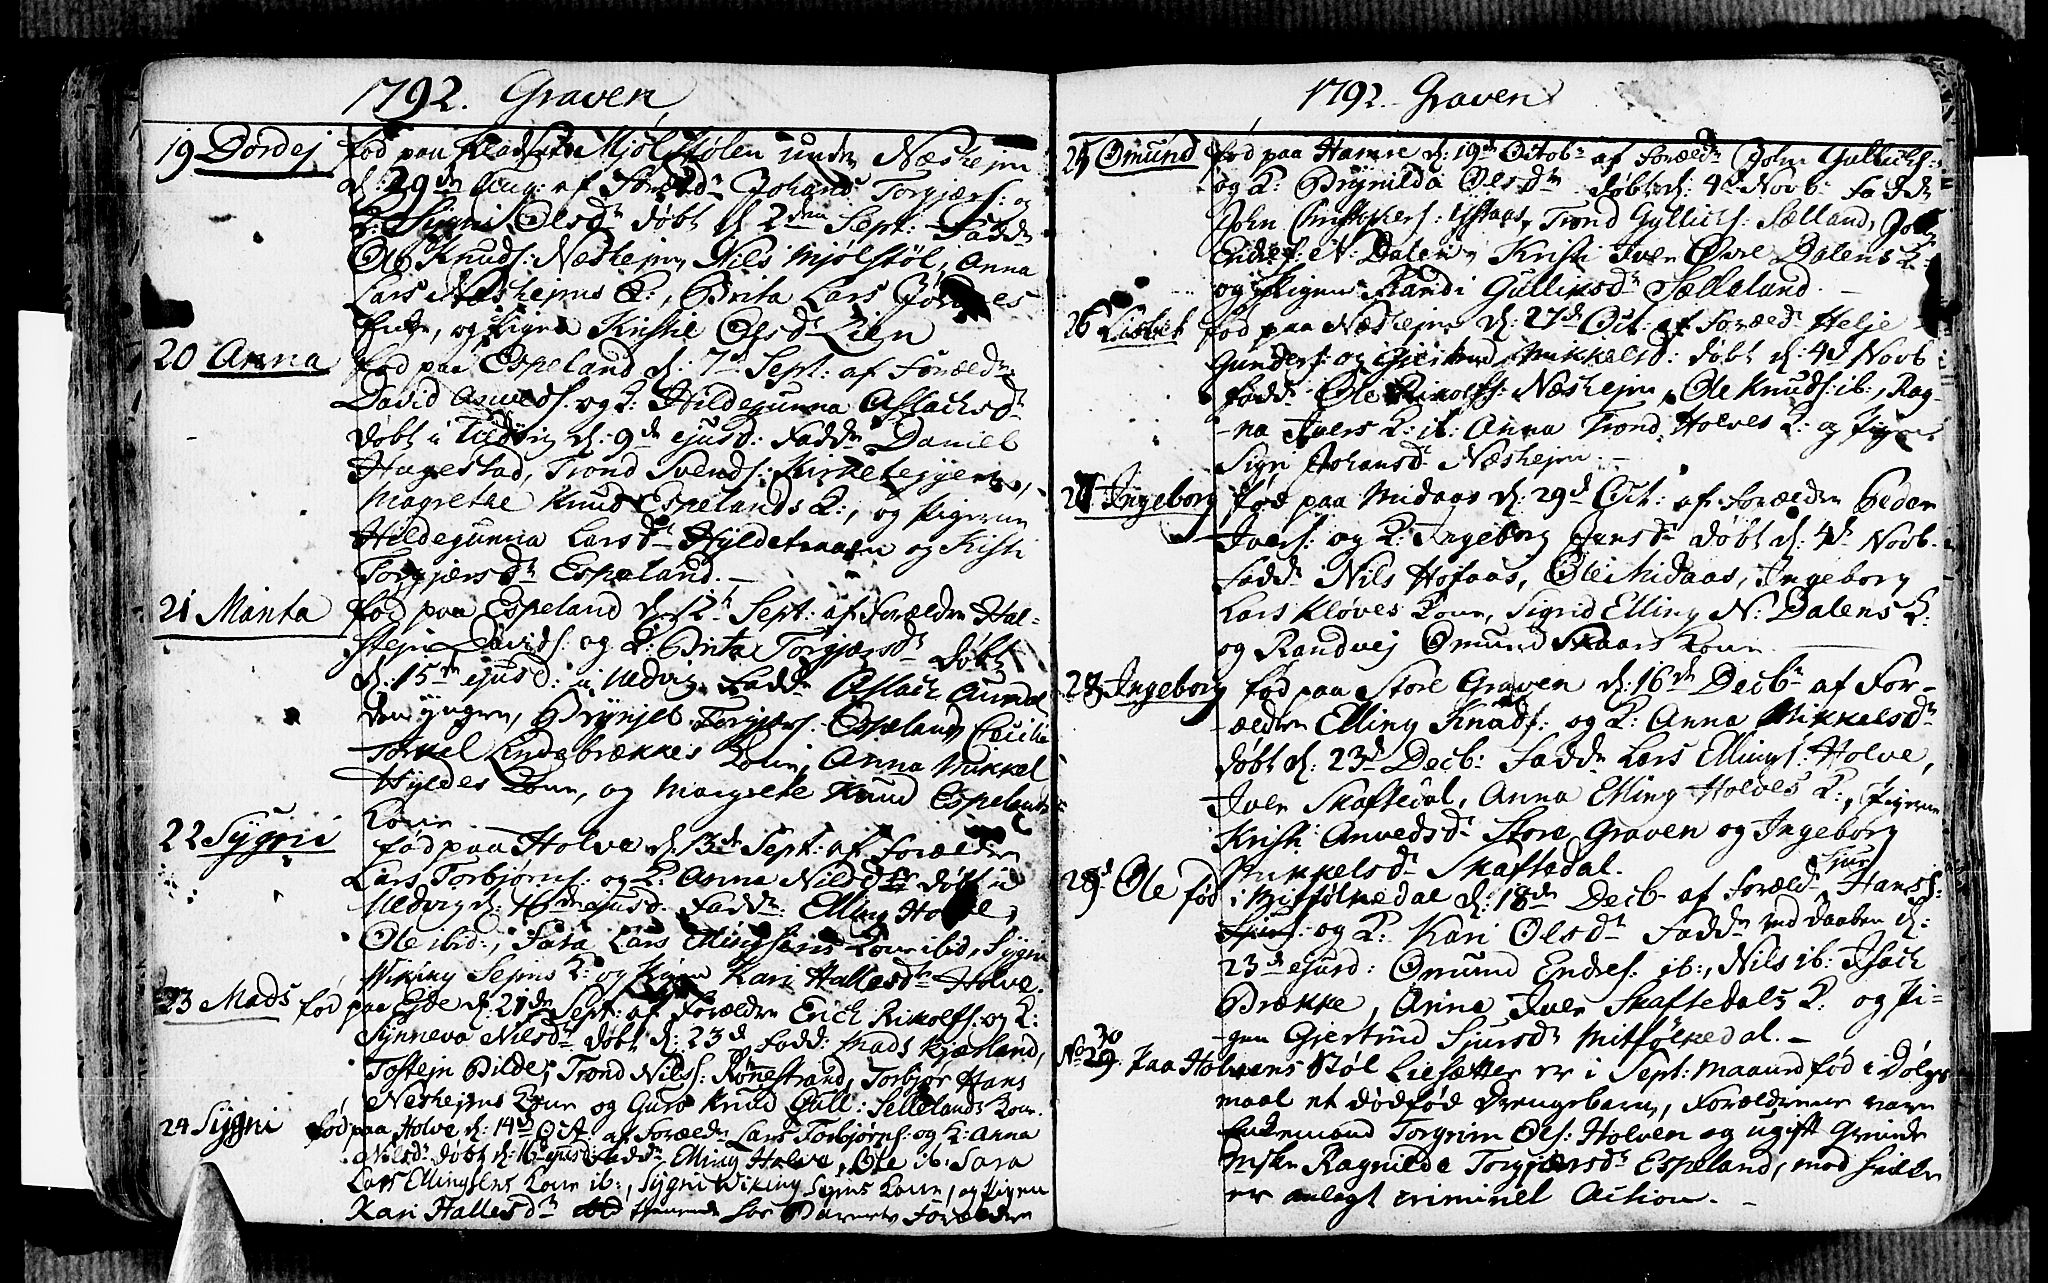 1792. Graven
19 Dordej fød paa Pladset Mjølstølen under Næshejm
d: 29de Aug: af Foræld: Johans Torgjærs: og
K: Sigri Olsd: døbt d: 2den Sept: Fadd:
Ole Knuds: Næshejm, Nils Mjølstøl, Anna
Lars Næshejms K:, Brita Lars
Enke, og Pigen Kristie Olsd: Lien
20 Anna fød paa Espeland d: 7d Sept: af Foræld:
David Anveds: og K: Hildegunna Aslachsd:
døbt i Uldvig d: 9de ejusd: Fadd: Daniel
Hagestad, Trond Svends: Kirketejgen,
Magrethe Knud Espelands K:, og Pigerne
Hildegunna Larsd: Hyldetraaen og Kristi
Torgjersd: Espeland. —
21 Marita fød paa Espeland d: 12te Sept: af Forældre Hal-
stejn Davids: og K: Brita Torgjersd: døbt
d: 15de ejusd: i Uldvig Fadd: Aslach Aurdal
den yngre, Brynjel Torgjers: Espeland, Cecilie
Torkel Lindebrækkes Kone, Anna Mikkel
Hyldes Kone, og Magrethe Knud Espelands
Kone
22 Sygrii fød paa Holve d: 13de Sept: af Forældre
Lars Torbjørns: og K: Anna Nilsd: døbt i
Uldvig d: 16de ejusd: Fadd: Elling Holve,
Ole ibid:, Sara Lars Ellingsens Kone ibid, Sygni
Wiking Sejms K: og Pigen Kari Hallesd: Holve
23 Mads fød paa Ejde d: 21de Sept: af Forældre Erich Rikolfs: og K:
Synneva Nilsd: døbt d: 23d Fadd: Mads Kjærland,
Tostejn Bilde, Trond Nils: Rønestrand, Torbjør Hans
Næshejms Kone og Guro Knud Gull: Sellelands Kone.
24 Sygni fød paa Holve d: 14d Oct: af Foræld: Lars Torbjørns: og K: Anna
Nilsd: døbt d: 16 ejusd: Fadd: Elling Holve, Ole ib: Sara
Lars Ellingsens Kone ib:, Sygni Wiking Sejms Kone, og Pigen
Kari Hallesd: for Barnets Forældre
1792. Graven
25 Omund fød paa Hamre d: 19de Octob: af Foræld: John Gullichs:
og K: Brynilda Olsd: døbt d: 4d Novb: Fadd:
John Christophers: Ystaas, Trond Gyllichs: Sælland, John
Endres: N: Dalen, Kristi Iver Øvre Dalens K:
og Pigen Randi Gulliksd: Sælleland. —
26 Lisbet fød paa Næshejm d: 27de Oct: af Foræld: Helje
Gunders: og Gjertrud Mikkelsd: døbt d: 4d Novb
Fadd: Ole Rikolfs: Næshejm, Ole Knuds: ib:, Rag-
-na Ivers K: ib: Anna Trond Holves K: og Pigen
Sigri Johansd: Næshejm. —
27 Ingeborg fød paa Midaas d: 29d Oct: af Forældre Peder
Ivers: og K: Ingeborg Jensd: døbt d: 4d Novb.
Fadd: Nils Hofaas, Ole Midaas, Ingeborg
Lars Kløves Kone, Sigrid Elling N: Dalens K:
og Randvej Omund Skaars Kone
28 Ingeborg fød paa Store Graven d: 16de Decb: af For-
ældre Elling Knuds: og K: Anna Mikkelsd:
døbt d: 23d Decb: Fadd: Lars Ellings: Holve,
Iver Skaftedal, Anna Elling Holves K:, Pigerne
Kristi Anvedsd: Store Graven og Ingeborg
Mikkelsd: Skaftedal.
29 Ole fød i Mitfølkedal d: 18de Decb: af Foræld: Sjur Hanss:
og K: Kari Olsd: Fadd: ved Daaben d:
23de ejusd: Omund Endres: ib:, Nils ib: Isach
Brække, Anna Iver Skaftedals K: og Pi-
gen Gjertrud Sjursd: Mitfølkedal. —
No 29. 30 Paa Holvens Støl Liesætter er i Sept: Maaned fød i Dølgs
maal et dødfød Drengebarn, Forældrene vare
Enkemand Torgrim Ols: Holven og ugift Qvinde
Msk: Ragnilde Torgjersd: Espeland, mod hvilke
er anlagt criminel Action. —